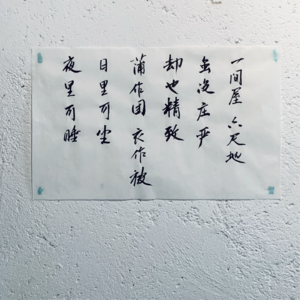 一间屋 六尺地
虽没庄严
却也精致
蒲作团 衣作被
日里可坐
夜里可睡